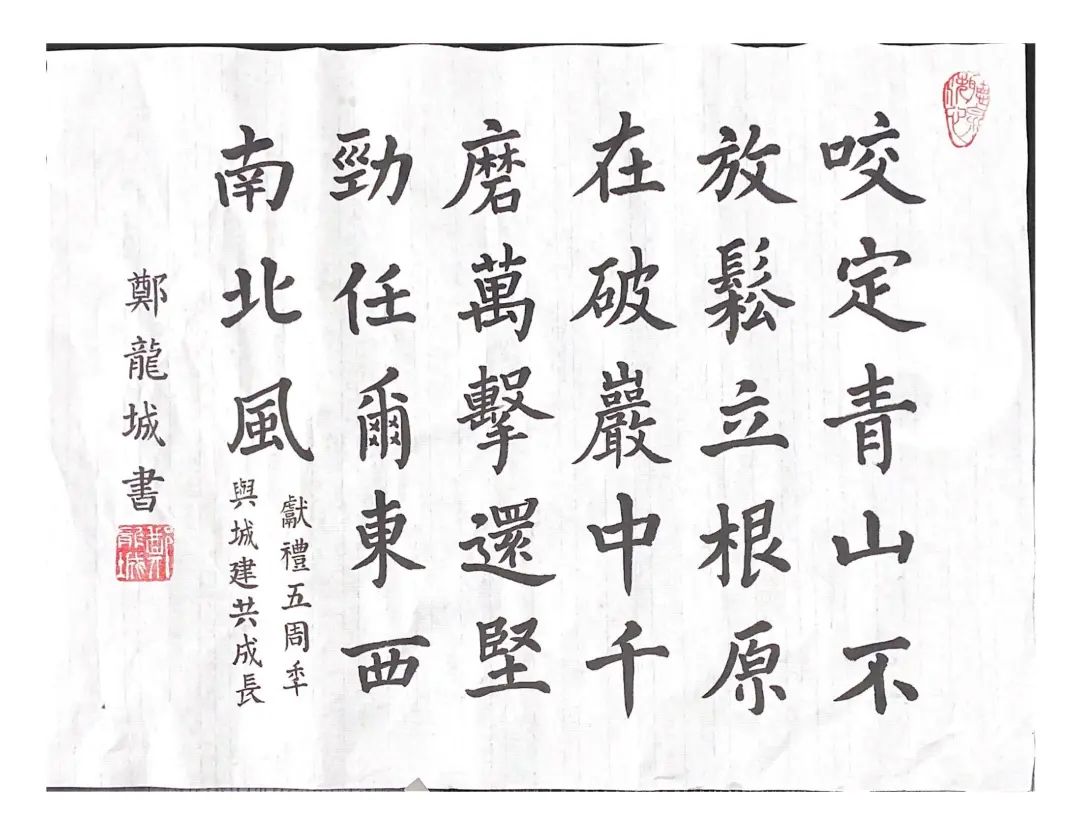 咬定青山不
放鬆立根原
在破巖中千
磨萬擊還堅
勁任爾東西
南北風
獻禮五周季
與城建共成長
鄭龍城書
鄭龍城